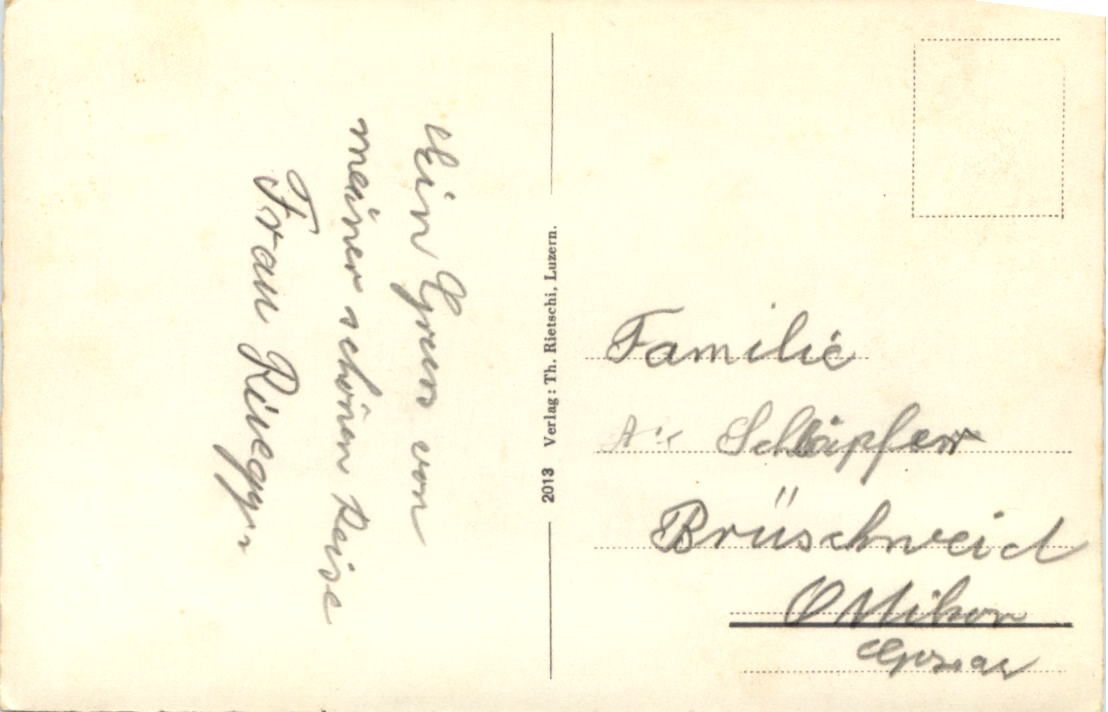 Ein Gruss von
meiner schönen Reise
Frau Rüegg.
2013 Verlag: Th. Rietschi, Luzern.
Familie
Schläpfer
Brüschweid
Ottikon
Gossau